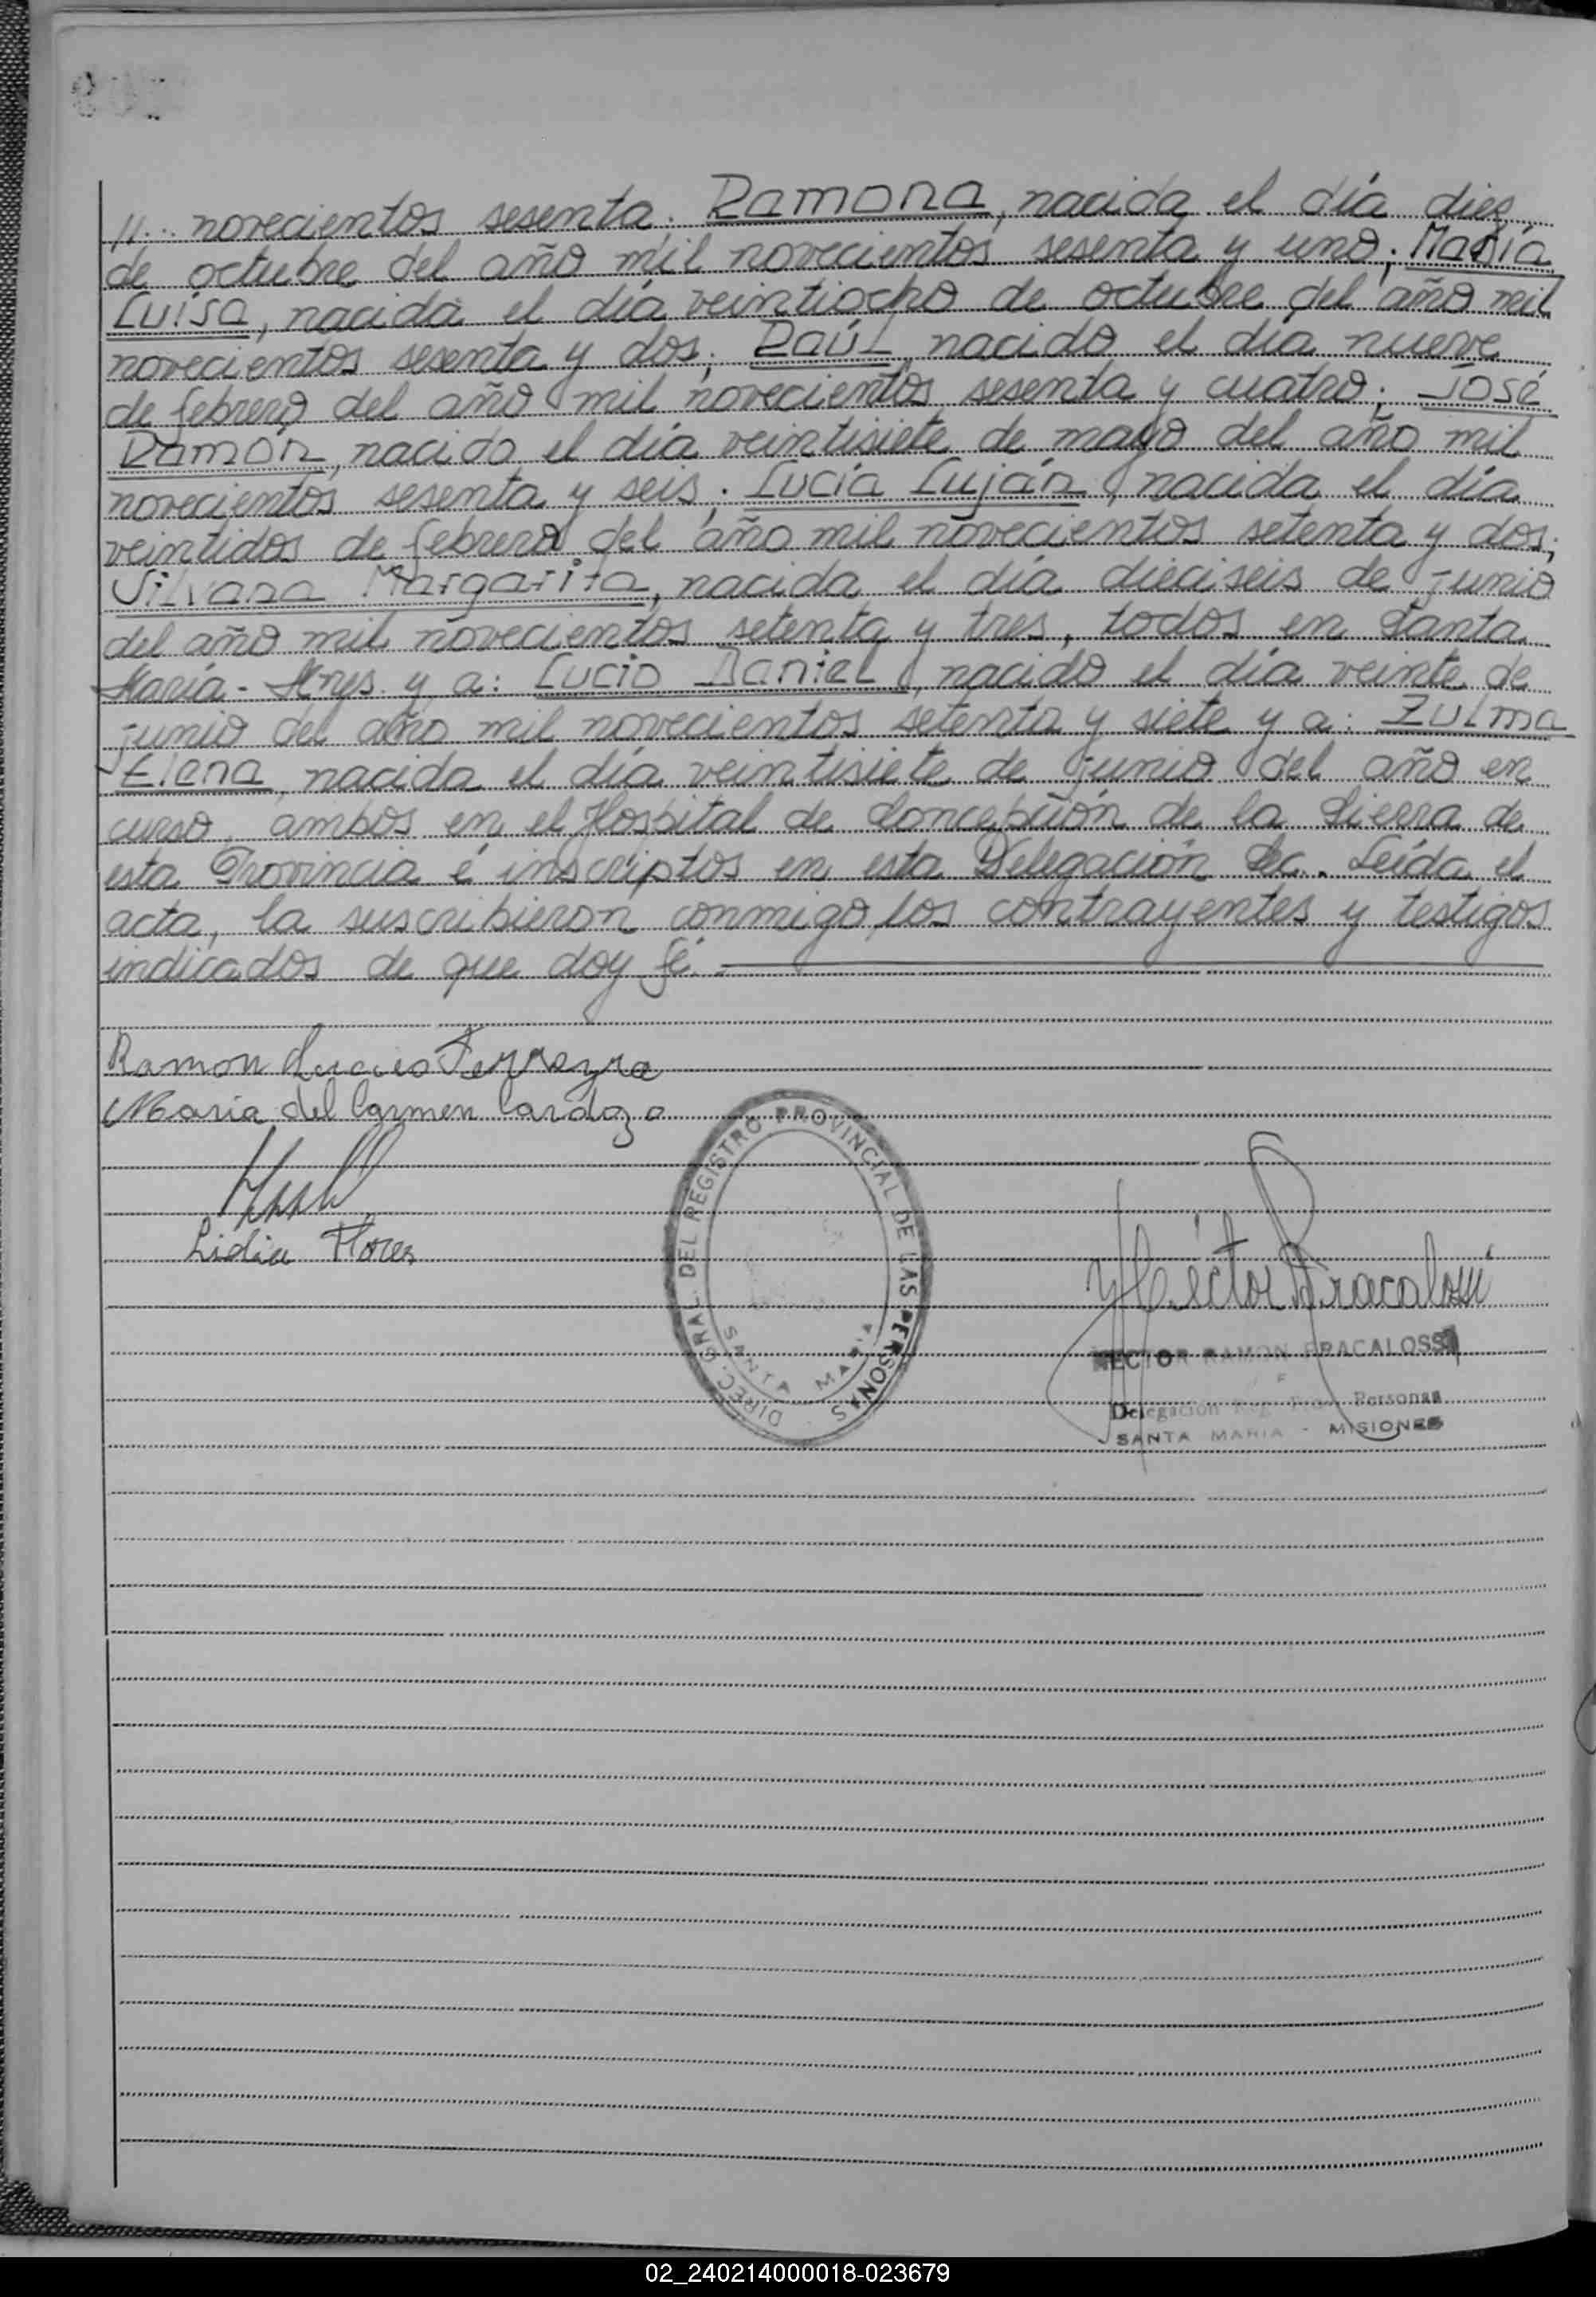 //... novecientos sesenta. Ramona, nacida el día diez
de octubre del año mil novecientos sesenta y uno; María
Luisa, nacida el día veintiocho de octubre del año mil
novecientos sesenta y dos; Raúl, nacido el día nueve
de febrero del año mil novecientos sesenta y cuatro; José
Ramón, nacido el día veintisiete de mayo del año mil
novecientos sesenta y seis; Lucía Luján, nacida el día
veintidos de febrero del año mil novecientos setenta y dos;
Silvana Margarita, nacida el día dieciseis de junio
del año mil novecientos setenta y tres, todos en Santa
María - Mnes. y a: Lucio Daniel, nacido el día veinte de
junio del año mil novecientos setenta y siete y a: Zulma
Elena, nacida el día veintisiete de junio del año en
curso, ambos en el Hospital de Concepción de la Sierra de
esta Provincia é inscriptos en esta Delegación &c. Leída el
acta, la suscribieron conmigo, los contrayentes y testigos
indicados de que doy fé.
Ramon Lucio Ferreyra
Maria del Carmen Cardozo
Lidia Flores
DIREC. GRAL. DEL REGISTRO PROVINCIAL DE LAS PERSONAS
SANTA MARIA
Héctor R Fracalossi
HECTOR RAMON FRACALOSSI
Delegación Reg. Prov. Personas
SANTA MARIA - MISIONES
02_240214000018-023679